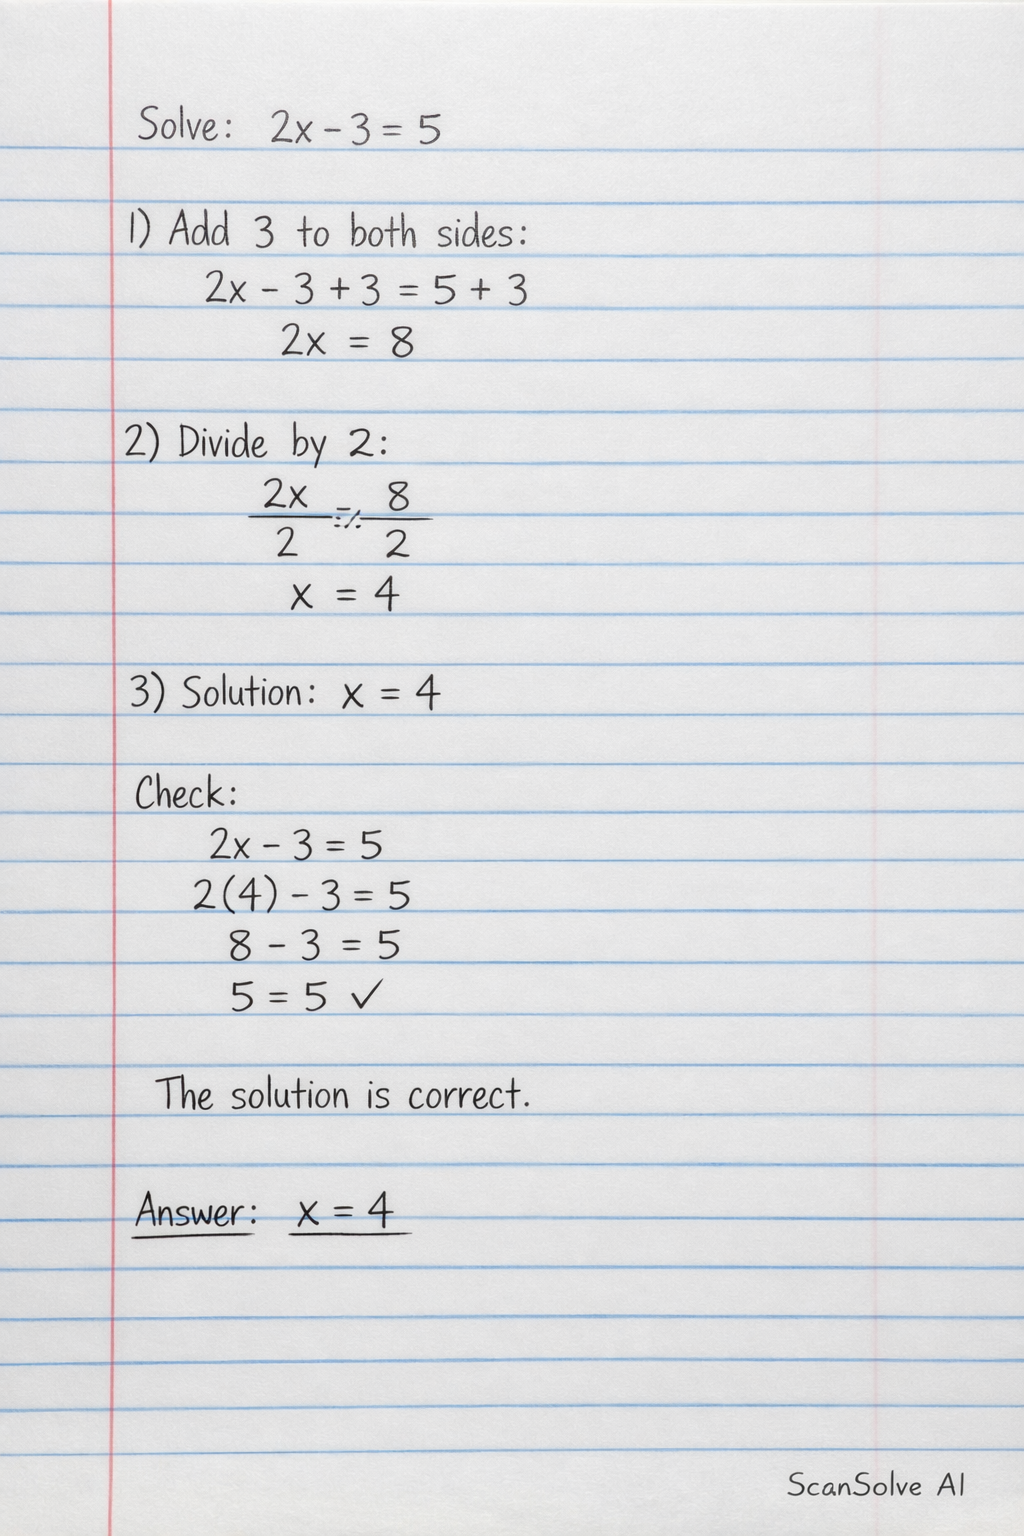 Solve: 2x - 3 = 5
1) Add 3 to both sides:
2x - 3 + 3 = 5 + 3
2x = 8
2) Divide by 2:
2x/2 = 8/2
x = 4
3) Solution: x = 4
Check:
2x - 3 = 5
2(4) - 3 = 5
8 - 3 = 5
5 = 5 ✓
The solution is correct.
Answer: x = 4
ScanSolve AI